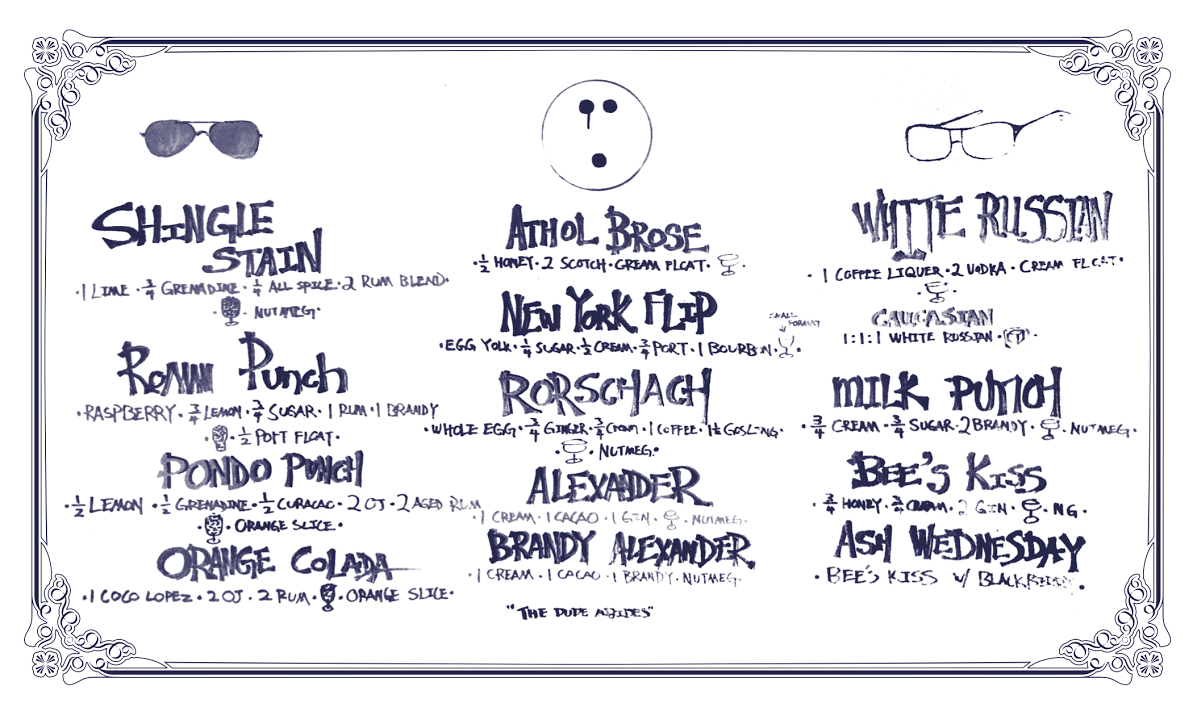 SHINGLE
STAIN
·1 LIME · 3/4 GRENADINE · 1/4 ALL SPICE · 2 RUM BLEND·
· NUTMEG·
Punch
·RASPBERRY · 3/4 LEMON · 3/4 SUGAR · 1 RUM · 1 BRANDY
· 1/2 PORT FLOAT·
PONDO PUNCH
· 1/2 LEMON · 1/2 GRENADINE · 1/2 CURACAO · 2 OJ · 2 AGED RUM
· ORANGE SLICE·
ORANGE COLADA
·1 COCO LOPEZ · 2 OJ · 2 RUM · ORANGE SLICE·
ATHOL BROSE
· 1/2 HONEY · 2 SCOTCH · CREAM FLOAT·
NEW YORK FLIP
SMALL
FORMAT
·EGG YOLK · 1/4 SUGAR · 1/2 CREAM · 3/4 PORT · 1 BOURBON ·
RORSCHACH
·WHOLE EGG · 3/4 GINGER · 3/4 CREAM · 1 COFFEE · 1½ GOSLING·
· NUTMEG·
ALEXANDER
·1 CREAM · 1 CACAO · 1 GIN · NUTMEG·
BRANDY ALEXANDER
·1 CREAM · 1 CACAO · 1 BRANDY · NUTMEG·
"THE DUDE ABIDES"
WHITE RUSSIAN
· 1 COFFEE LIQUER · 2 VODKA · CREAM FLOAT·
CAUCASIAN
1:1:1 WHITE RUSSIAN ·
MILK PUNCH
· 3/4 CREAM · 3/4 SUGAR · 2 BRANDY · NUTMEG·
BEE'S KISS
· 3/4 HONEY · 3/4 CREAM · 2 GIN · NG ·
ASH WEDNESDAY
· BEE'S KISS W/